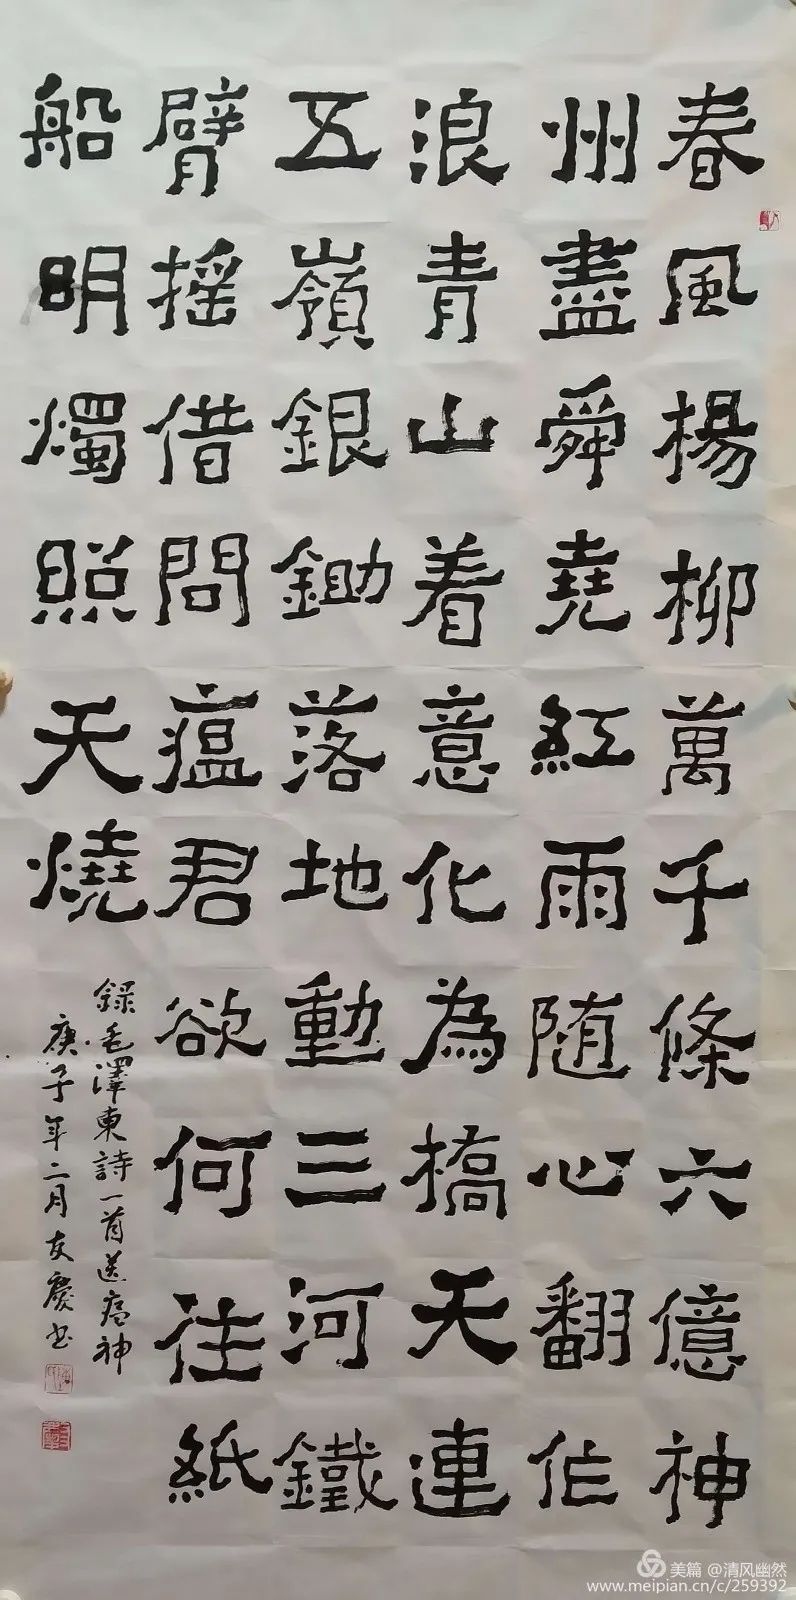 春風楊柳萬千條六億神
州盡舜堯紅雨随心翻作
浪青山着意化為橋天連
五嶺銀鋤落地動三河鐵
臂摇借問瘟君欲何往紙
船明燭照天燒
錄毛澤東詩一首送瘟神
庚子年二月友慶书
美篇 @清风幽然
www.meipian.cn/c/259392